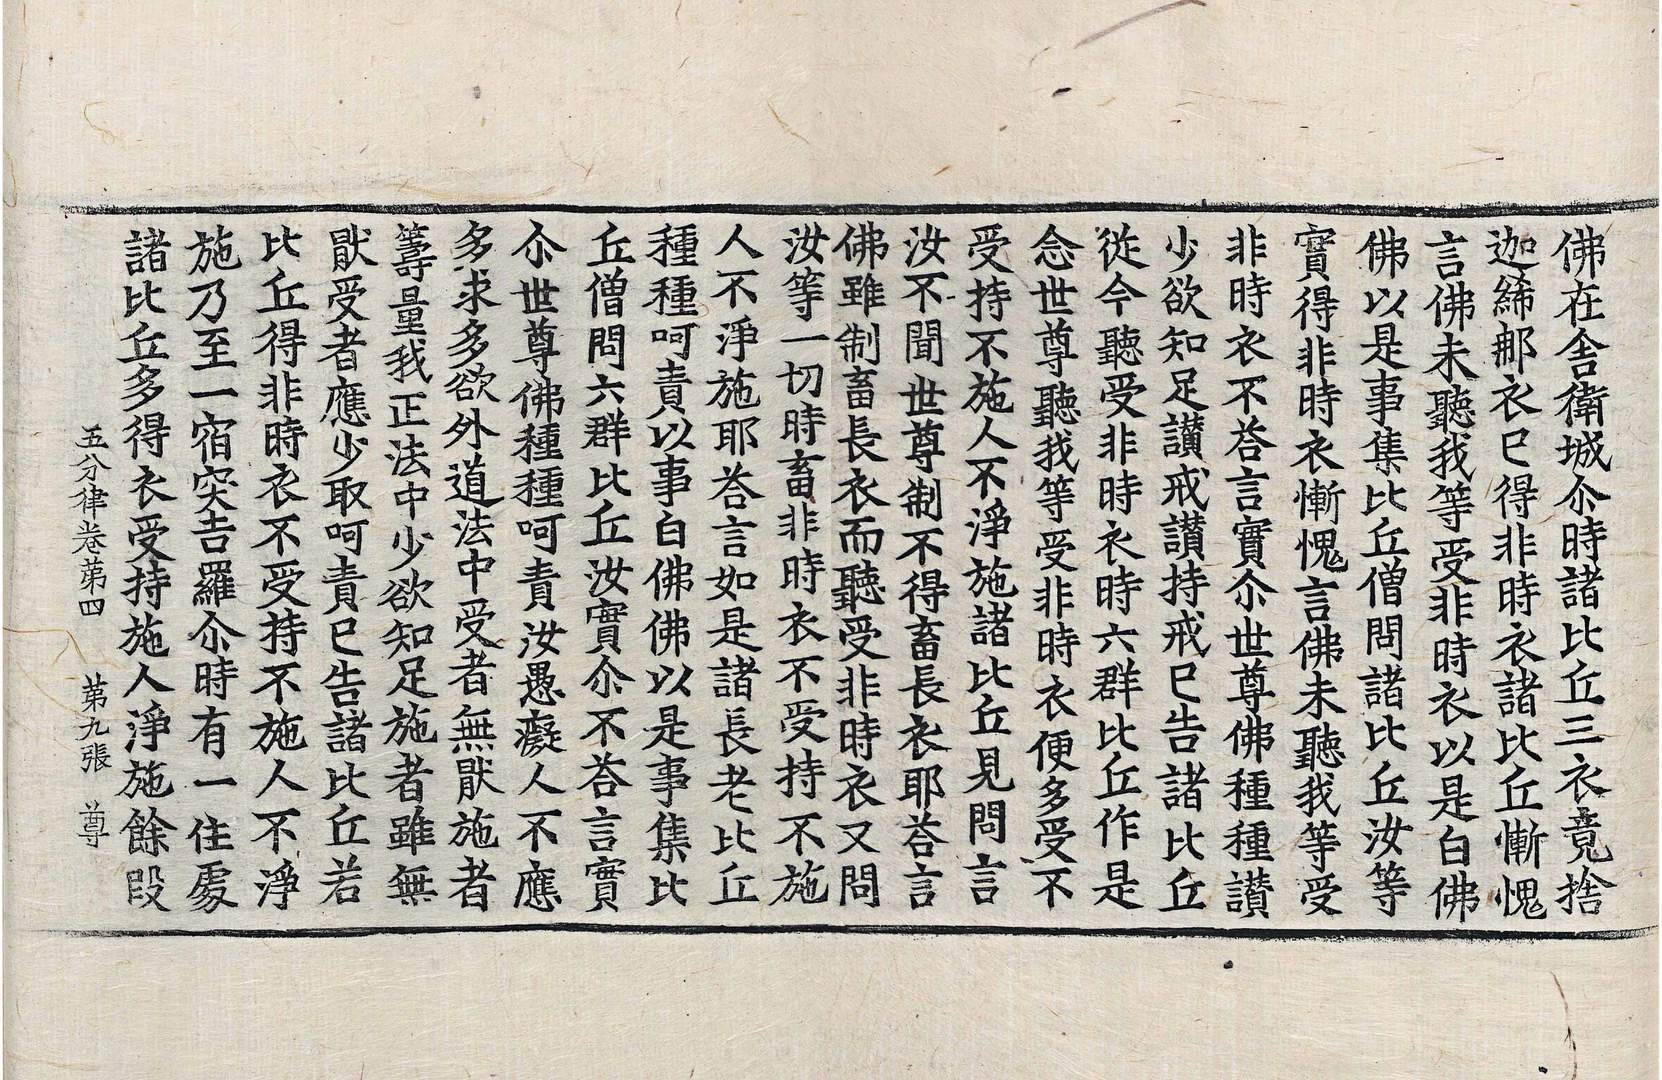 佛在舍衛城尒時諸比丘三衣竟捨
迦絺那衣已得非時衣諸比丘慚愧
言佛未聽我等受非時衣以是白佛
佛以是事集比丘僧問諸比丘汝等
實得非時衣慚愧言佛未聽我等受
非時衣不荅言實尒世尊佛種種讃
少欲知足讃戒讃持戒已告諸比丘
從今聽受非時衣時六群比丘作是
念世尊聽我等受非時衣便多受不
受持不施人不淨施諸比丘見問言
汝不聞世尊制不得畜長衣耶荅言
佛雖制畜長衣而聽受非時衣又問
汝等一切時畜非時衣不受持不施
人不淨施耶荅言如是諸長老比丘
種種呵責以事白佛佛以是事集比
丘僧問六群比丘汝實尒不荅言實
尒世尊佛種種呵責汝愚癡人不應
多求多欲外道法中受者無猒施者
籌量我正法中少欲知足施者雖無
猒受者應少取呵責已告諸比丘若
比丘得非時衣不受持不施人不淨
施乃至一宿突吉羅尒時有一住處
諸比丘多得衣受持施人淨施餘段
五分律卷第四　第九張　尊